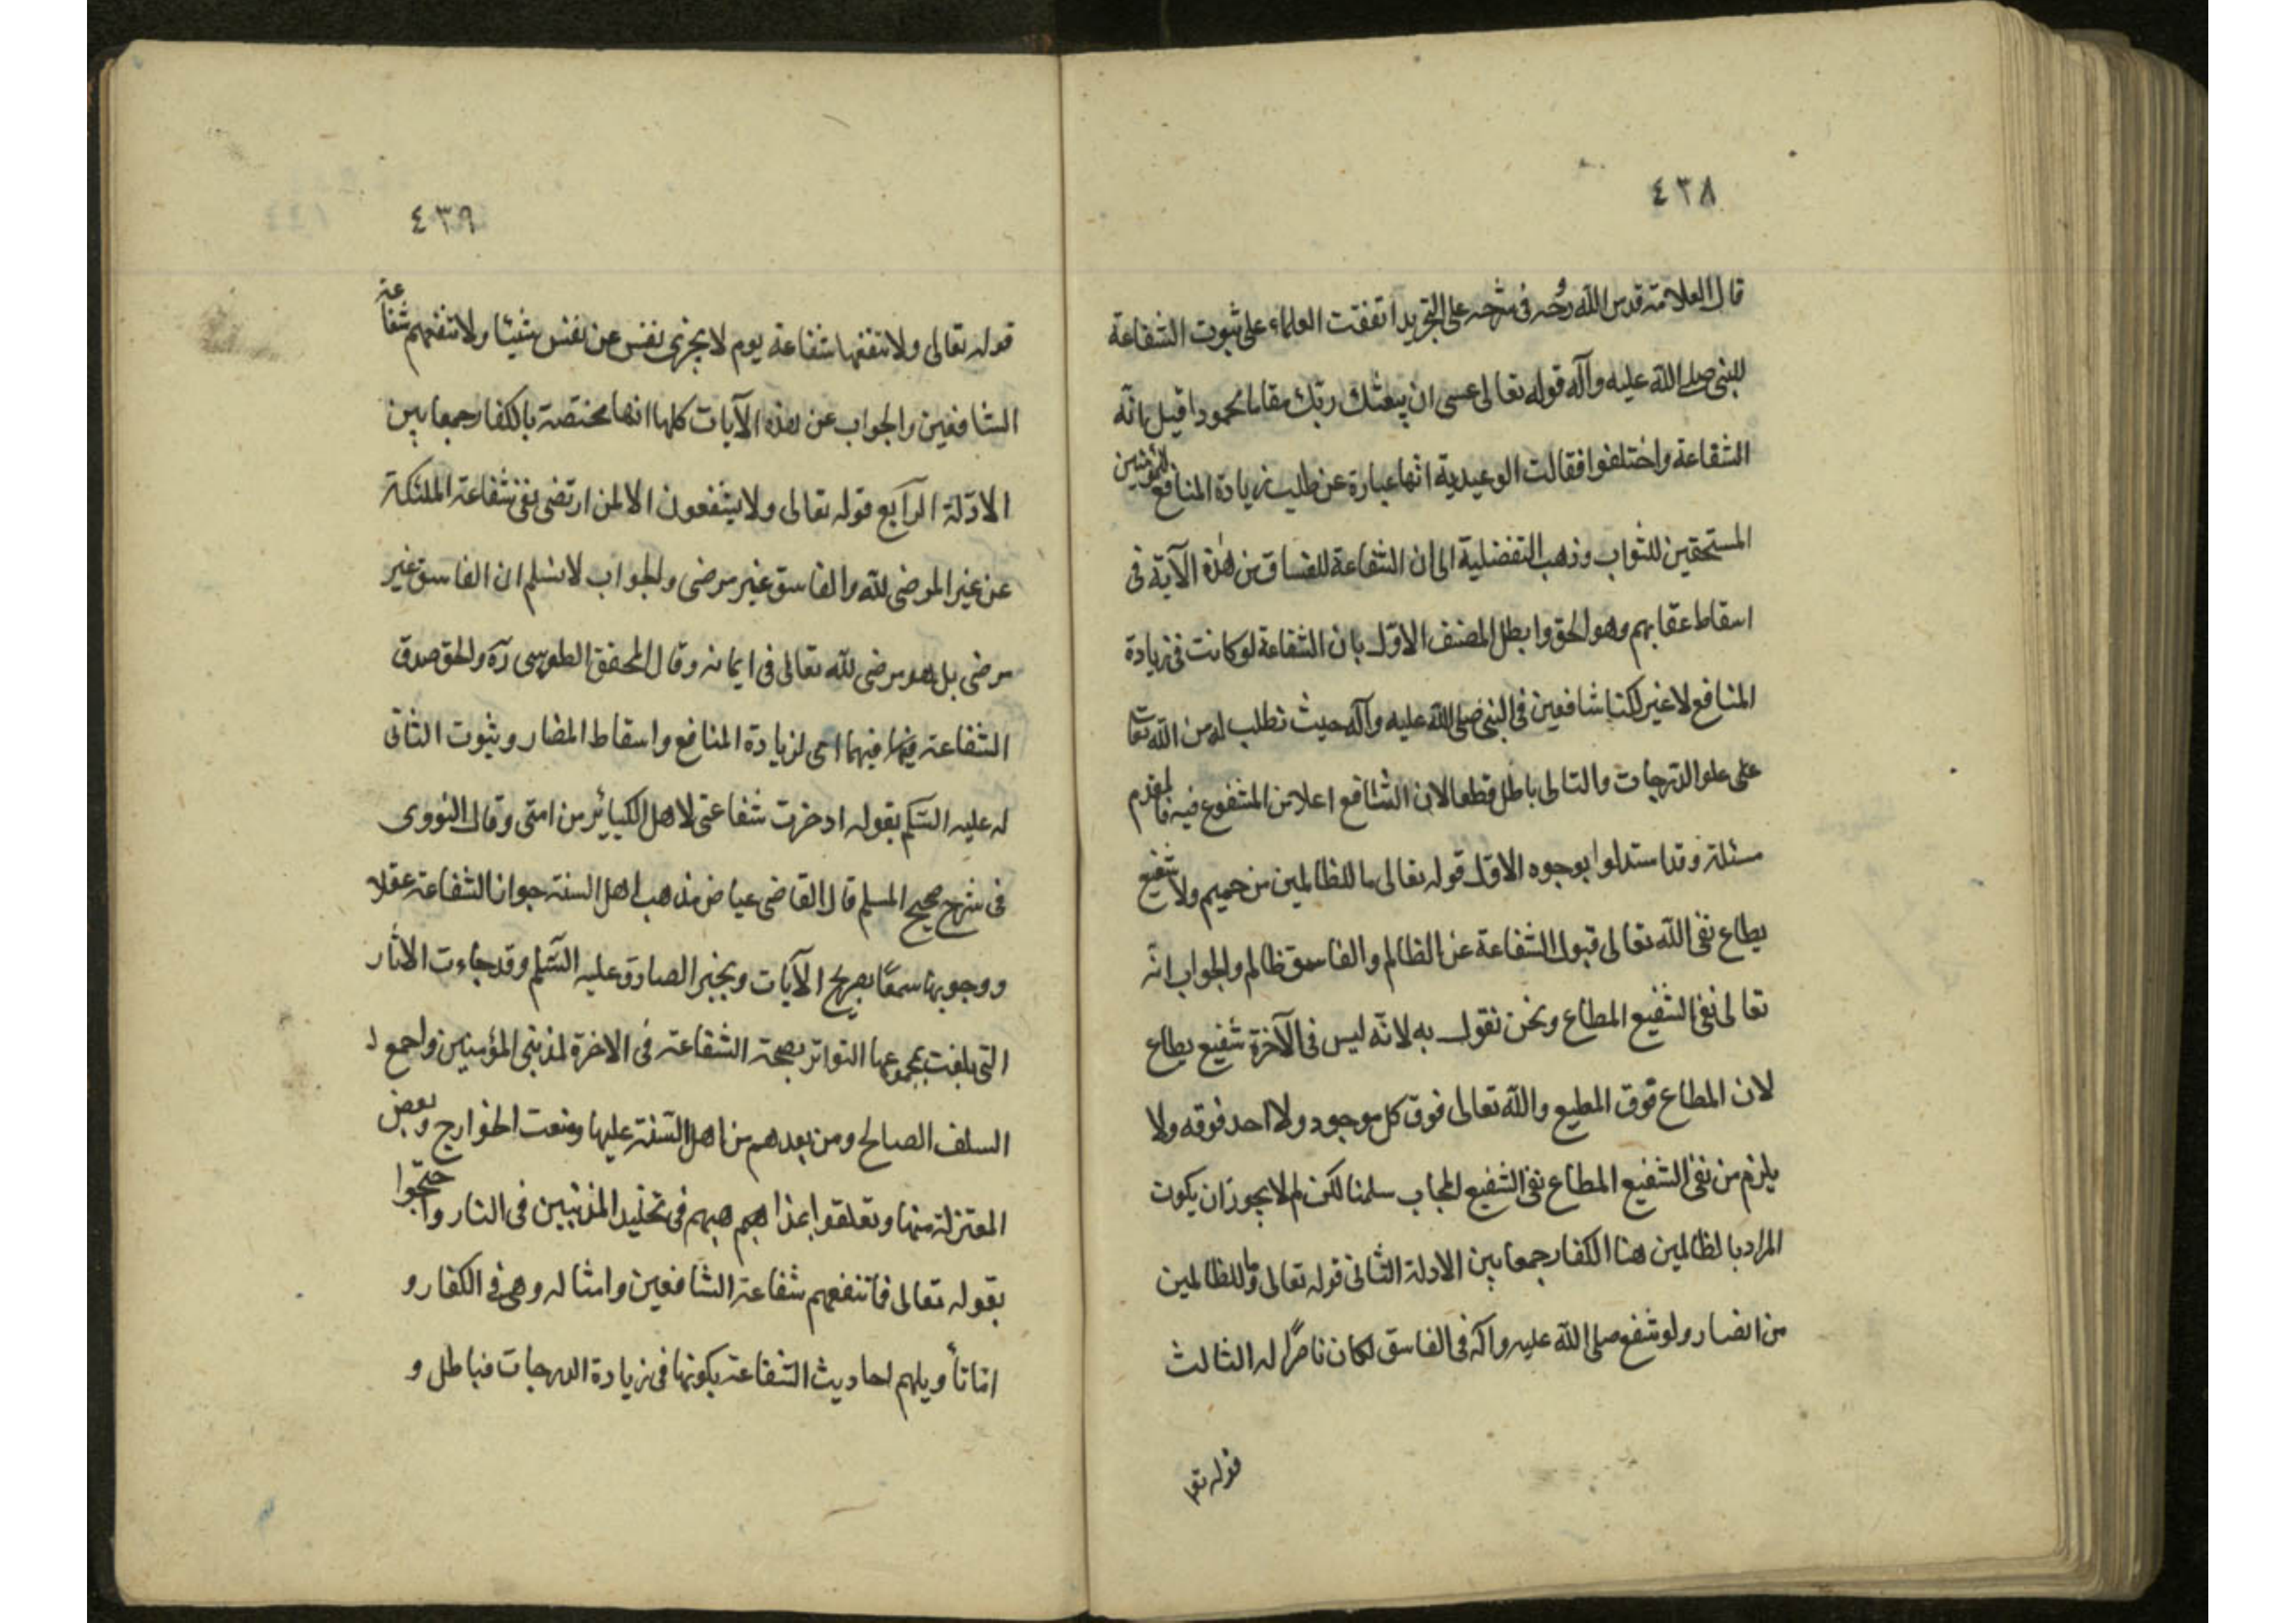 ٤٣٨
قال العلامة قدس الله روحه فى شرحه على التجريد اتفقت العلماء على ثبوت الشفاعة
للنبى صلى الله عليه وآله قوله تعالى عسى ان يبعثك ربك مقاما محمودا قيل بانّه
الشفاعة واختلفوا فقالت الوعيدية انها عبارة عن طلب زيادة المنافع للمؤمنين
المستحقين للثواب وذهب التفضلية الى ان الشفاعة للفساق من هذة الآية فى
اسقاط عقابهم وهو الحق وابطل المصنف الاوّل بان الشفاعة لو كانت فى زيادة
المنافع لا غير لكنا شافعين فى النبى صلى الله عليه وآله حيث نطلب له من الله تعا
على علو الدرجات والتالى باطل قطعا لان الشافع اعلا من المشفوع فيه فالمقدم
مسئلة وقد استدلوا بوجوه الاوّل قوله تعالى ما للظالمين من حميم ولا شفيع
يطاع نفى الله تعالى قبول الشفاعة عن الظالم والفاسق ظالم والجواب انّه
تعالى نفى الشفيع المطاع ونحن نقول به لانّه ليس فى الآخرة شفيع يطاع
لان المطاع فوق المطيع والله تعالى فوق كل موجود ولا احد فوقه ولا
يلزم من نفى الشفيع المطاع نفى الشفيع المجاب سلمنا لكن لم لا يجوز ان يكون
المراد بالظالمين هنا الكفار جمعا بين الادلة الثانى قوله تعالى وما للظالمين
من انصار ولو شفع صلى الله عليه وآله فى الفاسق لكان ناصرًا له الثالث
قوله تعا
٤٣٩
قوله تعالى ولا تنفعها شفاعة يوم لا يجزى نفس عن نفس شيئا ولا تنفعهم شفاعة
الشافعين والجواب عن هذه الآيات كلها انها مختصة بالكفار جمعا بين
الادلّة الرابع قوله تعالى ولا يشفعون الا لمن ارتضى نفى شفاعة الملئكة
عن غير المرضى لله والفاسق غير مرضى والجواب لا نسلم ان الفاسق غير
مرضى بل هو مرضى لله تعالى فى ايمانه وقال المحقق الطوسى ره والحق صدق
الشفاعة فيهما اى لزيادة المنافع واسقاط المضار وثبوت الثانى
له عليه السّلم بقوله ادخرت شفاعتى لاهل الكبائر من امتى وقال النووى
فى شرح صحيح المسلم قال القاضى عياض مذهب اهل السنة جواز الشفاعة عقلا
ووجوبها سمعًا بصريح الآيات وبخبر الصادق عليه السّلم وقد جاءت الاثار
التى بلغت بمجموعها التواتر بصحة الشفاعة فى الاخرة لمذنبى المؤمنين واجمع
السلف الصالح ومن بعدهم من اهل السّنة عليها ومنعت الخوارج وبعض
المعتزلة منها وتعلقوا فى تخليد المذنبين فى النار واحتجّوا
بقوله تعالى فما تنفعهم شفاعة الشافعين وامثاله وهى فى الكفار و
امّا تأويلهم احاديث الشفاعة بكونها فى زيادة الدرجات فباطل و